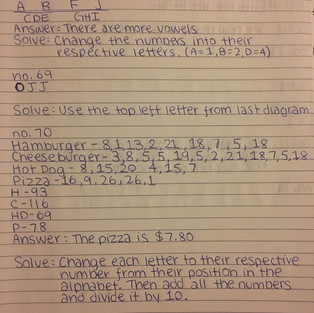 A B F J
CDE GHI
Answer: There are more vowels
Solve: Change the numbers into their
respective letters. (A=1, B=2, D=4)
no. 69
OJJ
Solve: Use the top left letter from last diagram
no. 70
Hamburger - 8,1,13,2,21,18,7,5,18
Cheeseburger - 3,8,5,5,19,5,2,21,18,7,5,18
Hot Dog - 8,15,20 4,15,7
Pizza - 16,9,26,26,1
H - 93
C - 116
HD - 69
P - 78
Answer: The pizza is $7.80
Solve: Change each letter to their respective
number from their position in the
alphabet. Then add all the numbers
and divide it by 10.